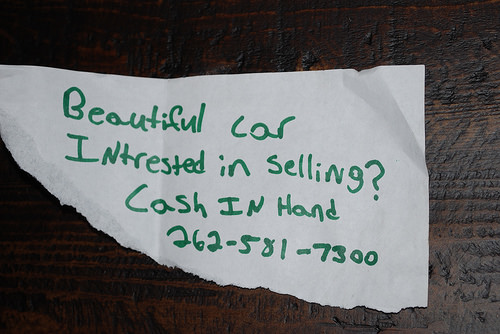 Beautiful car
INtrested in selliNg?
Cash IN Hand
262-581-7300